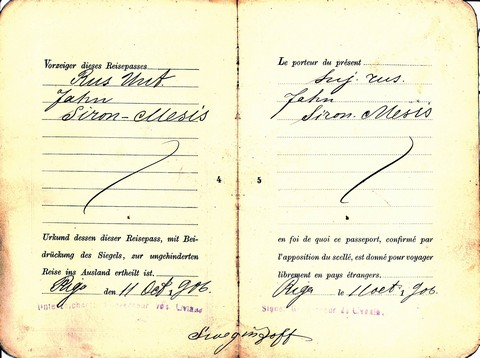 Vorzeiger dieses Reisepasses
Rus Unt.
Jahn
Siron-Mesis
4
Urkund dessen dieser Reisepass, mit Bei-
drückung des Siegels, zur ungehinderten
Reise ins Ausland ertheilt ist.
Riga den 11 Oct. 1906.
Le porteur du présent
Suj. rus.
Jahn
Siron-Mesis
5
en foi de quoi ce passeport, confirmé par
l'apposition du scellé, est donné pour voyager
librement en pays étrangers.
Riga le 11 oct. 1906.